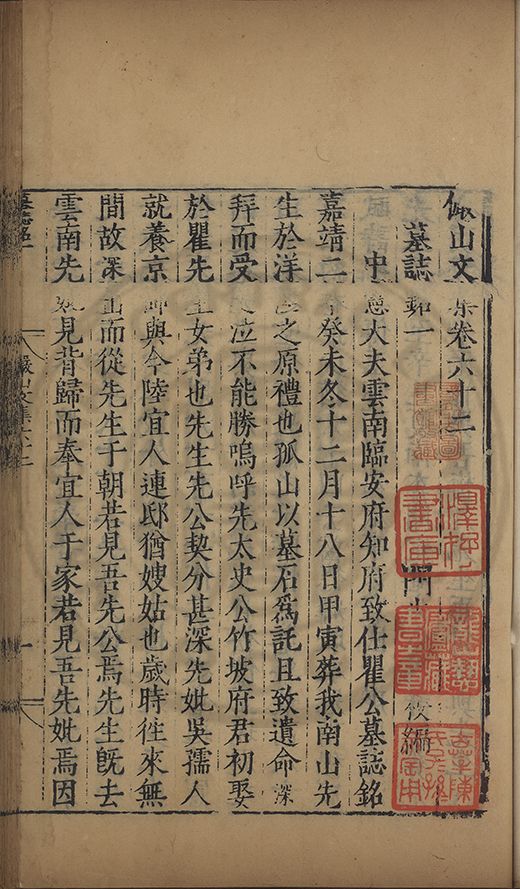 儼山文集卷六十二
墓誌銘一
中憲大夫雲南臨安府知府致仕瞿公墓誌銘
嘉靖二年癸未冬十二月十八日甲寅葬我南山先
生於洋涇之原禮也孤山以墓石爲託且致遺命深
拜而受泣不能勝嗚呼先太史公竹坡府君初娶
於瞿先生女弟也先生先公契分甚深先妣吳孺人
就養京師與今陸宜人連邸猶嫂姑也歲時往來無
間故深出而從先生于朝若見吾先公焉先生旣去
雲南先妣見背歸而奉宜人于家若見吾先妣焉因
墓誌銘一
儼山文集六十二
一
校編